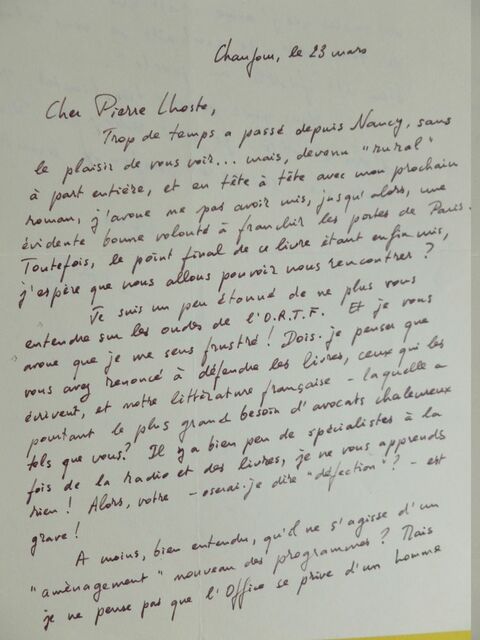 Chaufour, le 23 mars
Cher Pierre Lhoste,
Trop de temps a passé depuis Nancy, sans
le plaisir de vous voir... mais, devenu "rural"
à part entière, et en tête à tête avec mon prochain
roman, j'avoue ne pas avoir mis, jusqu'alors, une
évidente bonne volonté à franchir les portes de Paris.
Toutefois, le point final de ce livre étant enfin mis,
j'espère que nous allons pouvoir nous rencontrer ?
Je suis un peu étonné de ne plus vous
entendre sur les ondes de l'O.R.T.F. Et je vous
avoue que je me sens frustré ! Dois-je penser que
vous avez renoncé à défendre les livres, ceux qui les
écrivent, et notre littérature française - laquelle a
pourtant le plus grand besoin d'avocats chaleureux
tels que vous ? Il y a bien peu de spécialistes à la
fois de la radio et des livres, je ne vous apprends
rien ! Alors, votre - oserai-je dire "défection" ? - est
grave !
A moins, bien entendu, qu'il ne s'agisse d'un
"aménagement" nouveau des programmes ? Mais
je ne pense pas que l'Office se prive d'un homme